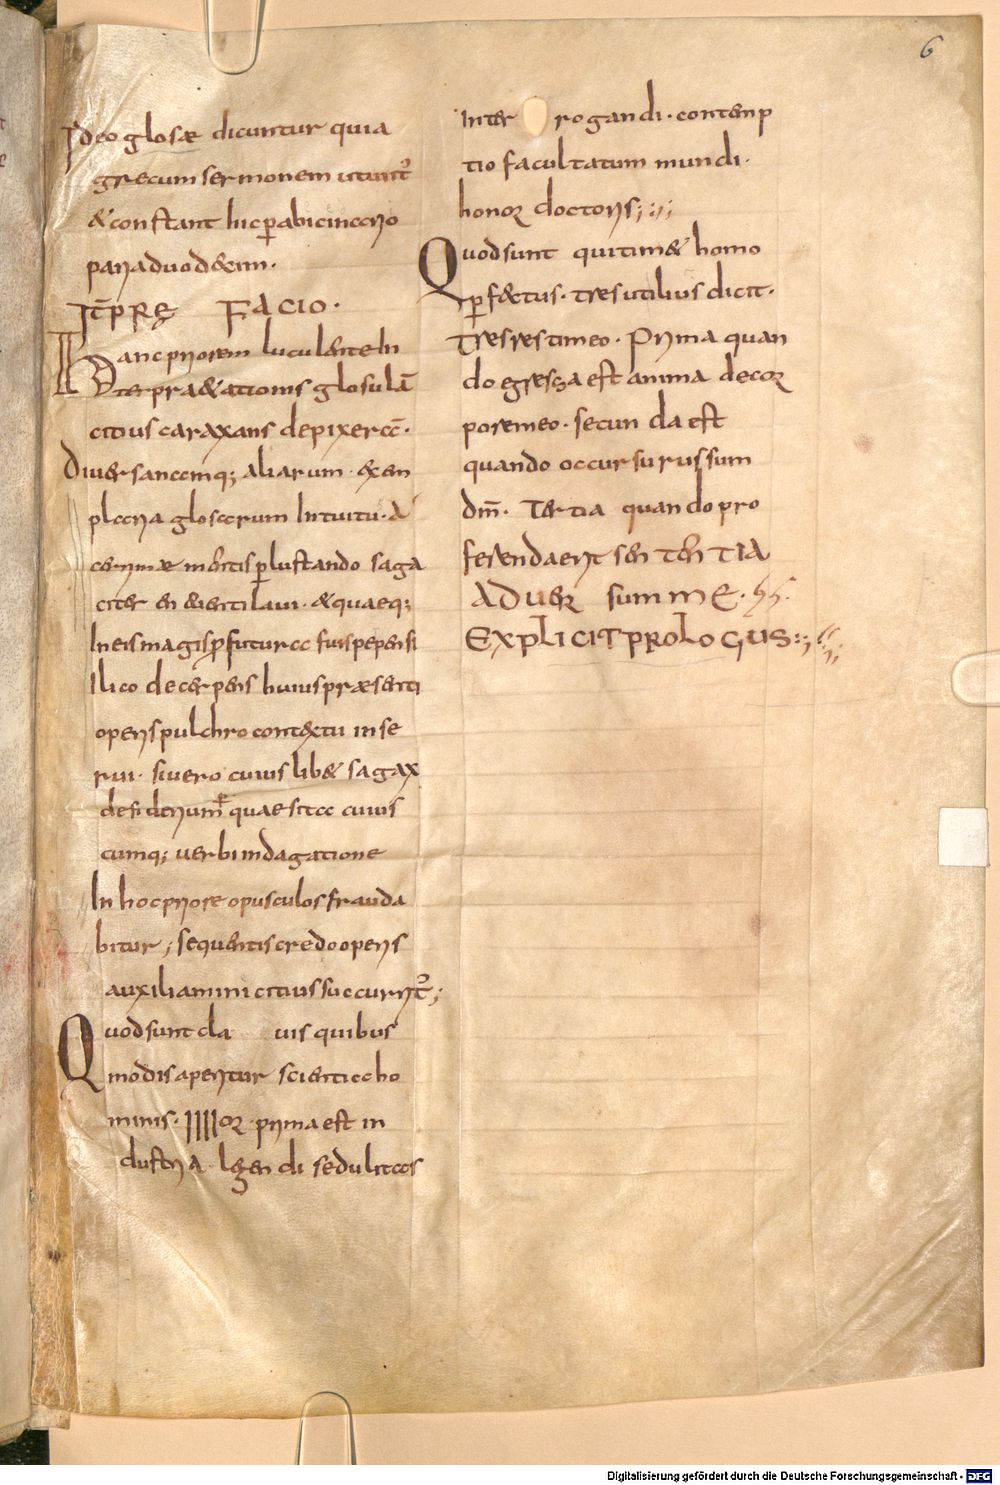 6
Ideo glosae dicuntur quia
grecum sermonem utunt̉
& constant hic p̱ abicinario
paria duod&cim.
It̄ prę Facio.
Hanc priorem luculenter In
terpra&ationis glosulā
citius caraxans depixerā.
Diuersarumq; aliarum. exem
plaria glosarum Intuitu. A
cerrimae mentis p̱lustando saga
citer en euentilaui. &quaeq;
Ineis magis ꝓfutura fuis pepensi
Ilico decerpens huius praesenti
operis pulchro contextu inse
rui. si uero cuius lib& sagax
desiderium quaesita cuius
cumq; uerbi indagatione
In hoc priore opusculos frauda
bitur; sequentis credo operis
auxiliamini citius succurrit̉;
Quod sunt cla uis quibus
modis aperitur scientia ho
minis. IIIIor prima est in
dustria. legendi sedulitas
Inter rogandi. contemp
tio facultatum mundi.
honor doctoris;
Quod sunt qui tim& homo
p̱fectus. tres utilius dicit.
Tres res timeo. Prima quan
do egressa est anima de cor
pore meo. secunda est
quando occursurus sum
dn̄m. Tertia quando pro
ferenda erit sententia
aduer sum me.
EXPLICIT PROLOGUS
Digitalisierung gefördert durch die Deutsche Forschungsgemeinschaft - DFG